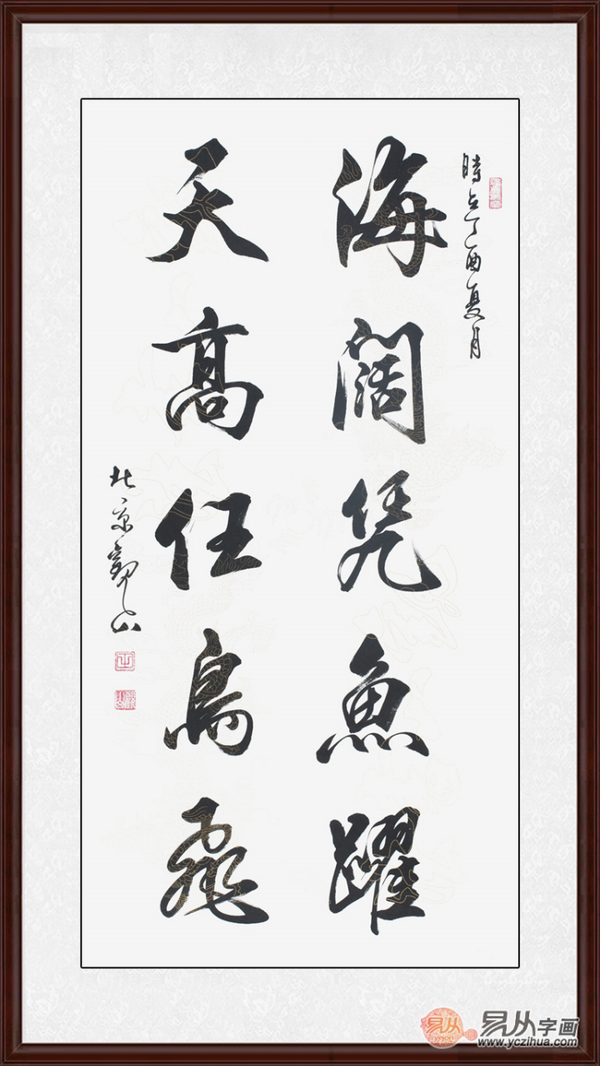 時在丁酉夏月
海闊凭魚躍
天髙任鳥飛
北京觀山
易从
易从字画
www.yczihua.com